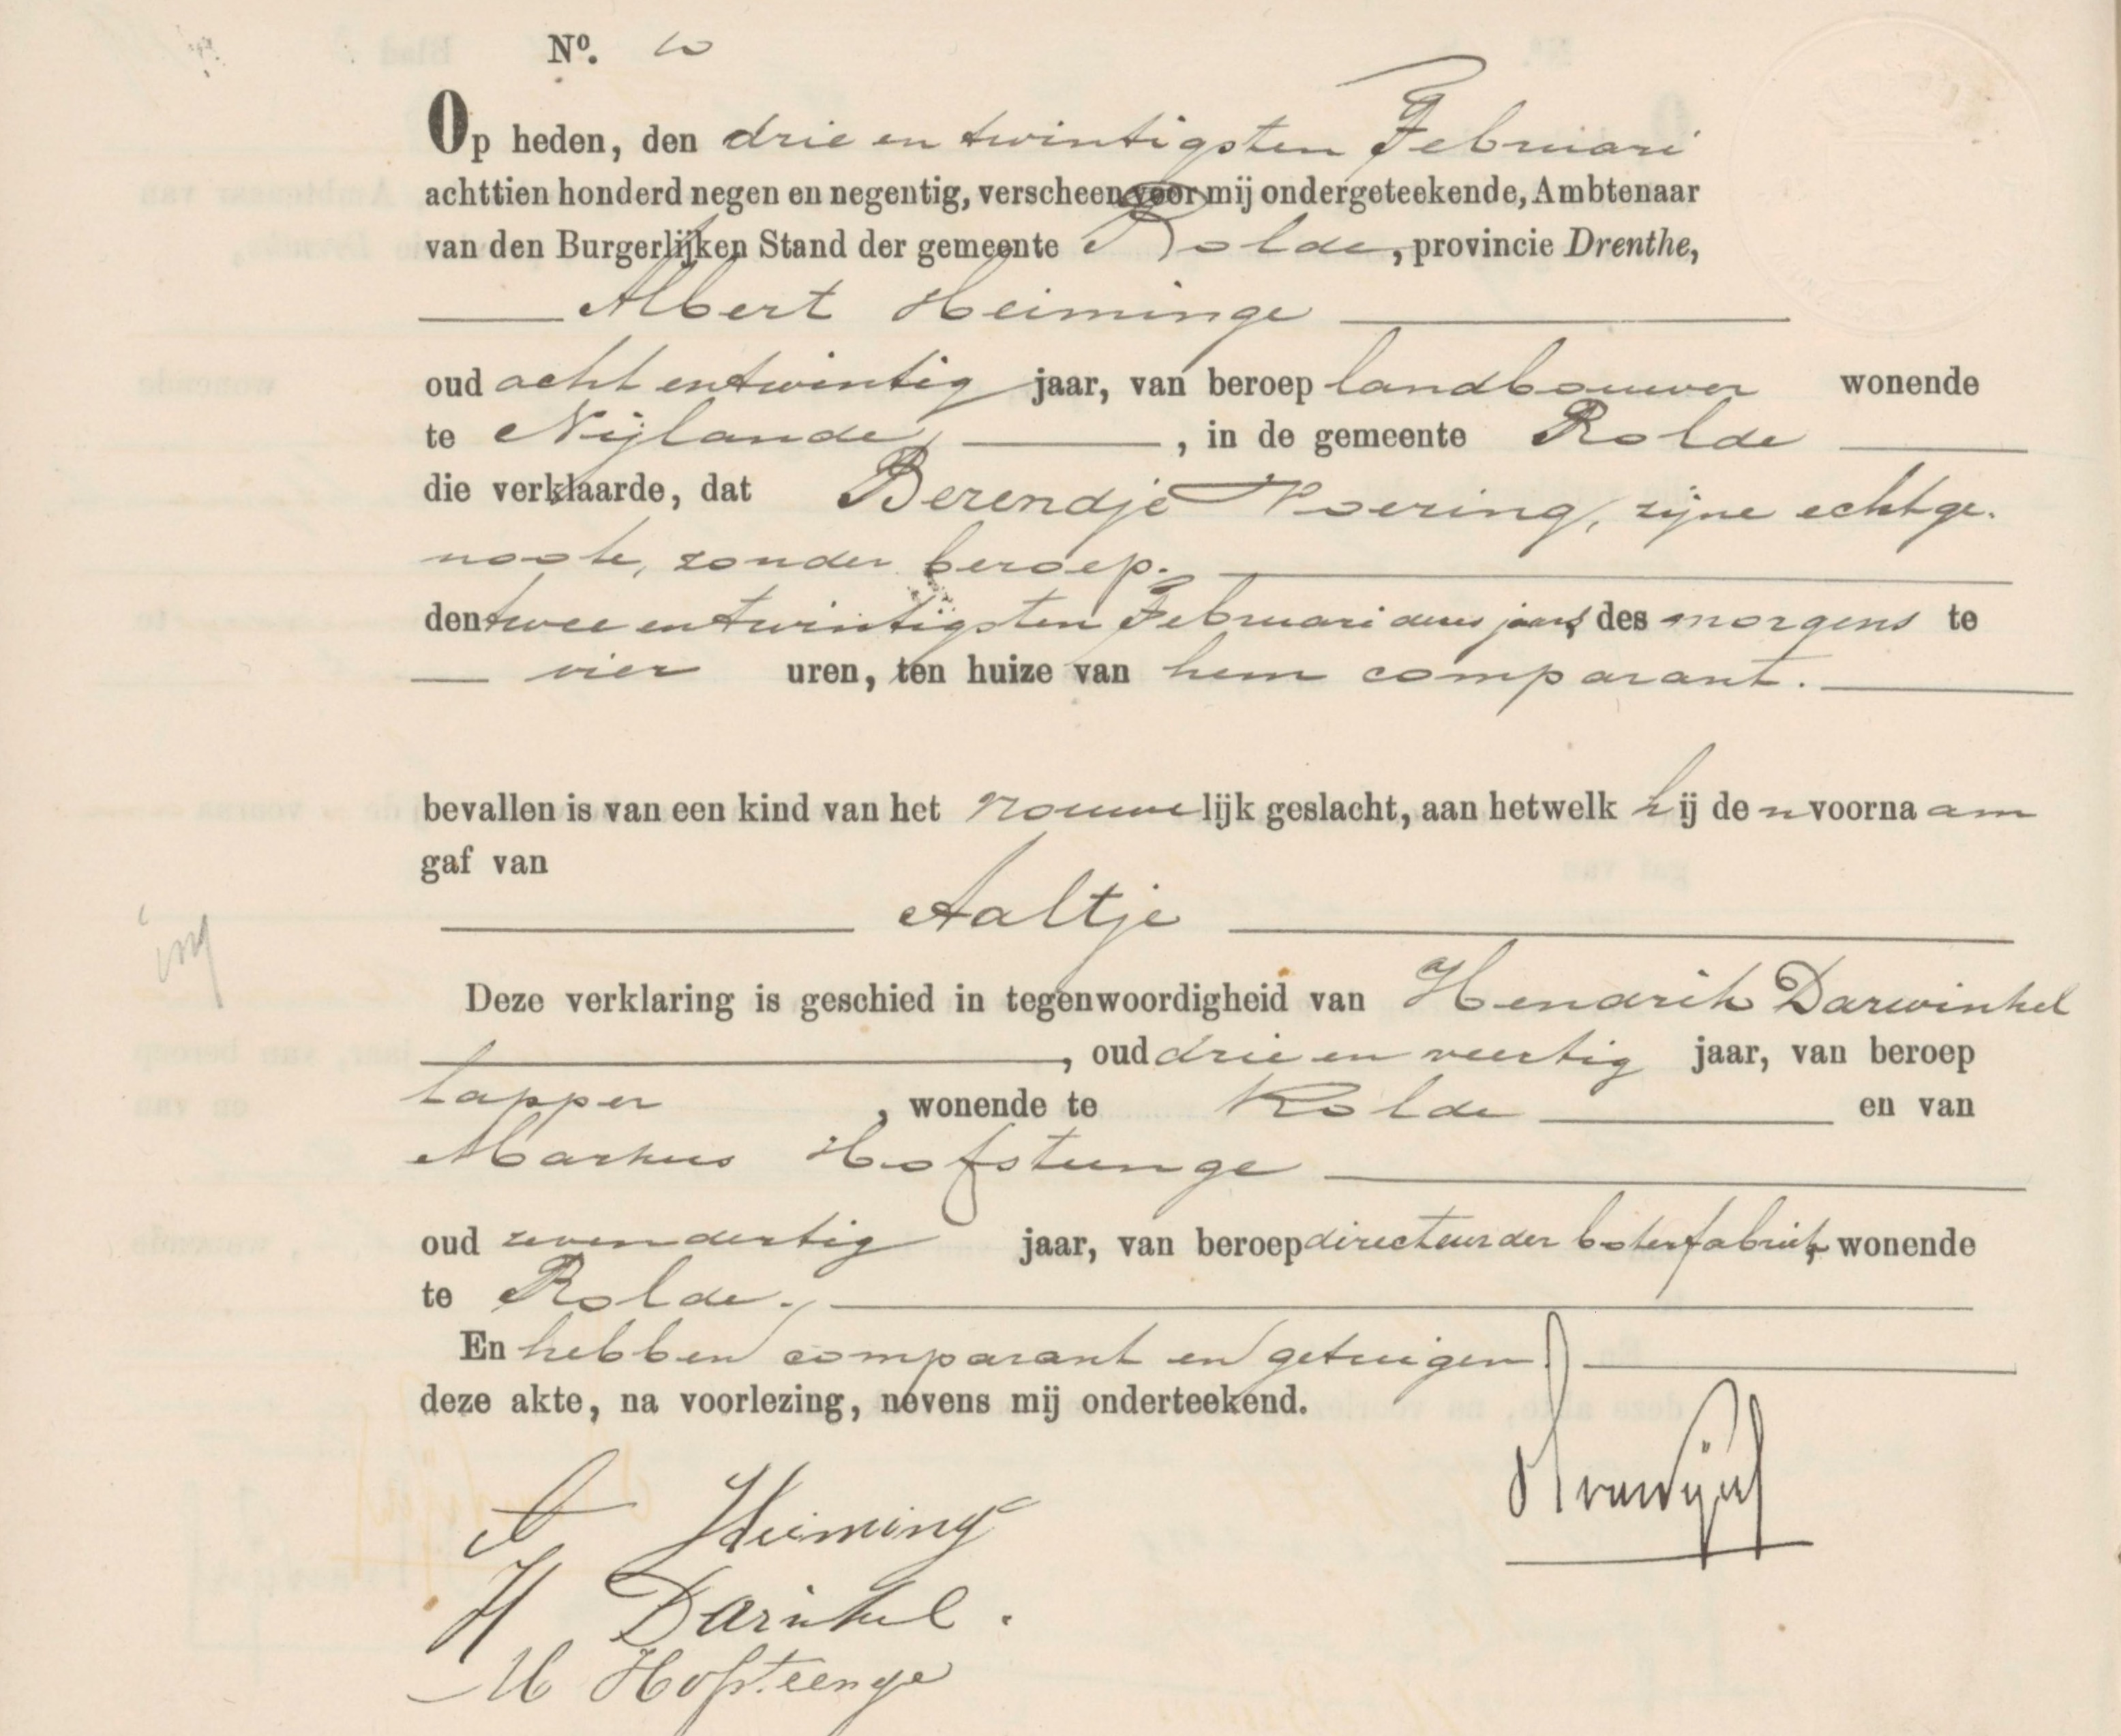 Nº.
Op heden, den drie en twintigsten Februari
achttien honderd negen en negentig, verscheen voor mij ondergeteekende, Ambtenaar
van den Burgerlijken Stand der gemeente Rolde, provincie Drenthe,
Albert Heiminge
oud acht en twintig jaar, van beroep landbouwer wonende
te Nijlande, , in de gemeente Rolde
die verklaarde, dat Berendje zijne echtge-
noote, zonder beroep.
den twee en twintigsten Februari dezes jaars, des morgens te
vier uren, ten huize van hem comparant.
bevallen is van een kind van het vrouwelijk geslacht, aan hetwelk hij de n voorna am
gaf van
Aaltje
Deze verklaring is geschied in tegenwoordigheid van Hendrik Darwinkel
, oud drie en veertig jaar, van beroep
tapper , wonende te Rolde en van
Markus Hofsteenge
oud zevendertig jaar, van beroep directeur der boterfabriek, wonende
te Rolde.
En hebben comparant en getuigen
deze akte, na voorlezing, nevens mij onderteekend.
A Heiming
H Darinkel.
M Hofsteenge